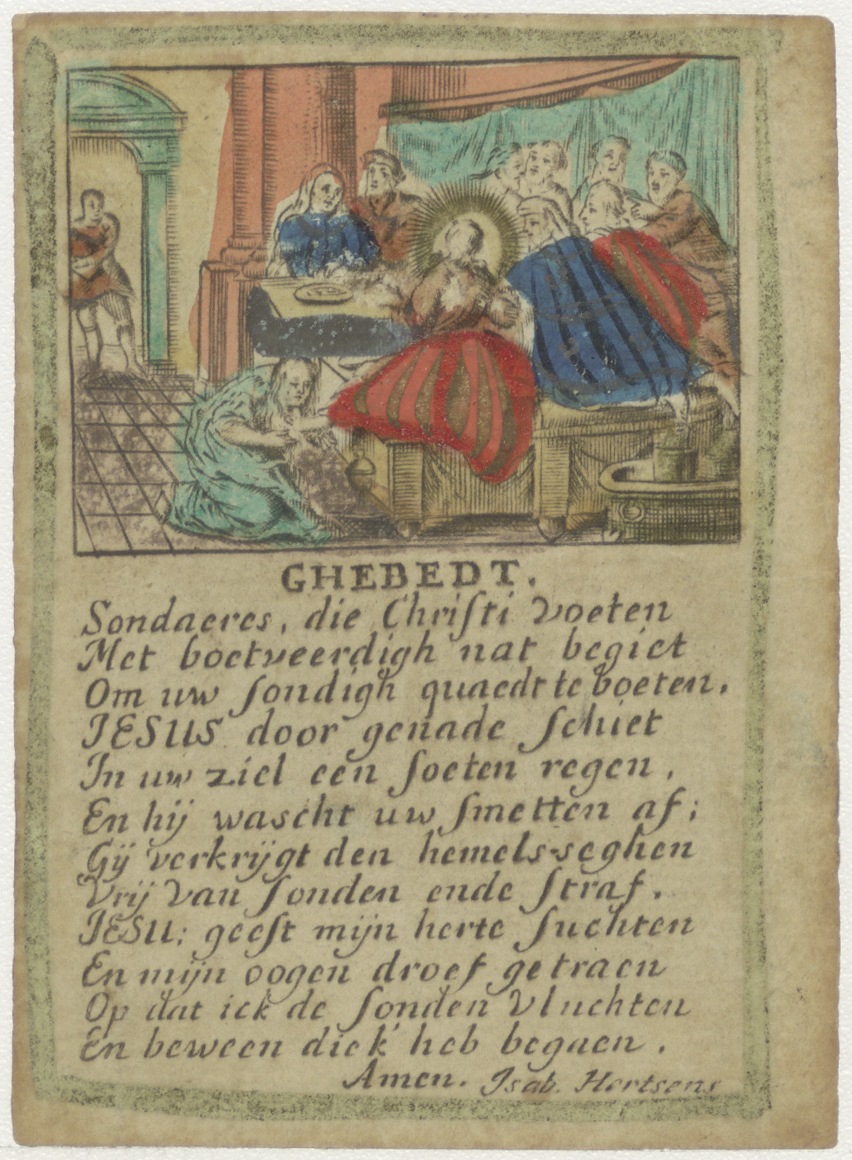 GHEBEDT.
Sondaeres, die Chriſti voeten
Met boetveerdigh nat begiet
Om uw ſondigh quaedt te boeten.
JESUS door genade ſchiet
In uw ziel een ſoeten regen,
En hij wascht uw ſmetten af;
Gij verkrijgt den hemels-seghen
Vrij van ſonden ende ſtraf.
JESU: geeft mijn herte ſuchten
En mijn oogen droef getraen
Op dat ick de ſonden vluchten
En beween dieck heb begaen.
Amen. Isab. Hertsens